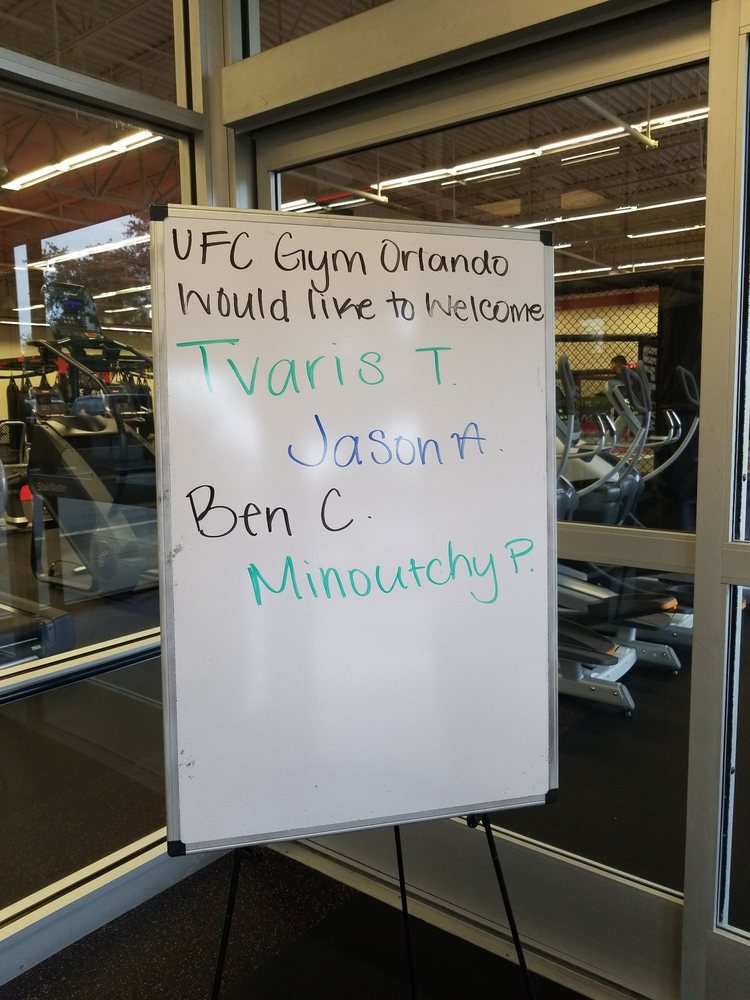 UFC Gym Orlando
Would like to Welcome
Tvaris T.
Jason A.
Ben C.
Minoutchy P.